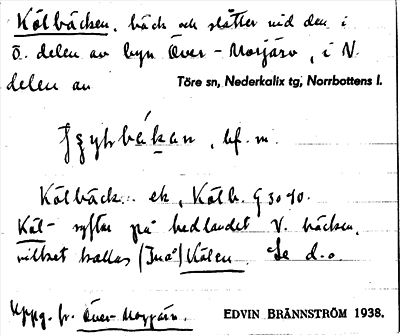 Kölbäcken, bäck och slåtter vid den i
ö. delen av byn Över-Morjärv, i N.
delen av Töre sn, Nederkalix tg, Norrbottens l.
bf. m.
Kölbäck... ek, Kölb. G 30 40.
Köl- syftar på hedlandet V. bäcken,
vilket kallas (Inå) Kölen. Se d.o.
Uppg. fr. Över-Morjärv. EDVIN BRÄNNSTRÖM 1938.